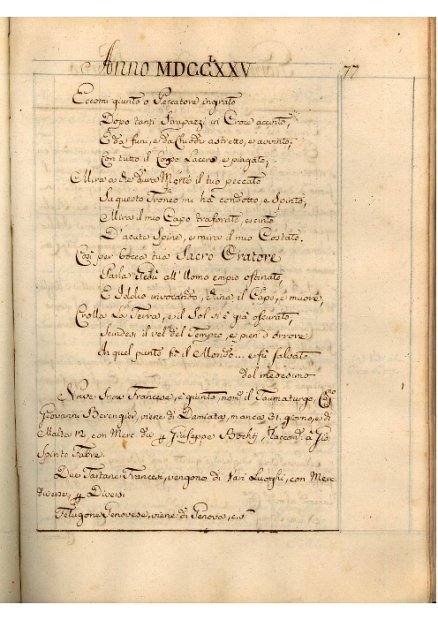 Anno MDCCLXXV
77
Eccomi giunto o Peccatore ingrato
Dopo tanti Strapazzi in Croce accinto,
E da funi, e da Chiodi astretto, e avvinto,
Con tutto il Corpo Lacero e piagato,
Mira a che dura Morte il tuo peccato
Su questo Tronco mi ha condotto, e Spinto,
Mira il mio Capo traforato, e cinto
D'acute Spine, e mira il mio Costato.
Così per bocca tua Sacro Oratore
Parla Gesù all'Uomo empio ostinato,
E Iddio invocando, china il Capo, e muore,
Crolla La Terra, e il Sol si è già oscurato,
Scindesi il vel del Tempio, e pien d'orrore
In quel punto fù il Mondo... e fù salvato
Del medesimo
Nave Snow Francese, è giunto, nom.º il Taumaturgo Cap.no
Giovanni Berengier, viene di Damiata, manca 31. giorno, e di
Malta 12, con Merc. die p Giuseppe Bochti, raccom. a Gio
Spirito Fabre.
Due Tartane Francesi, vengono di Vari Luoghi, con Merc
diverse, p Diversi
Felugone Genovese, viene di Genova, c. s.